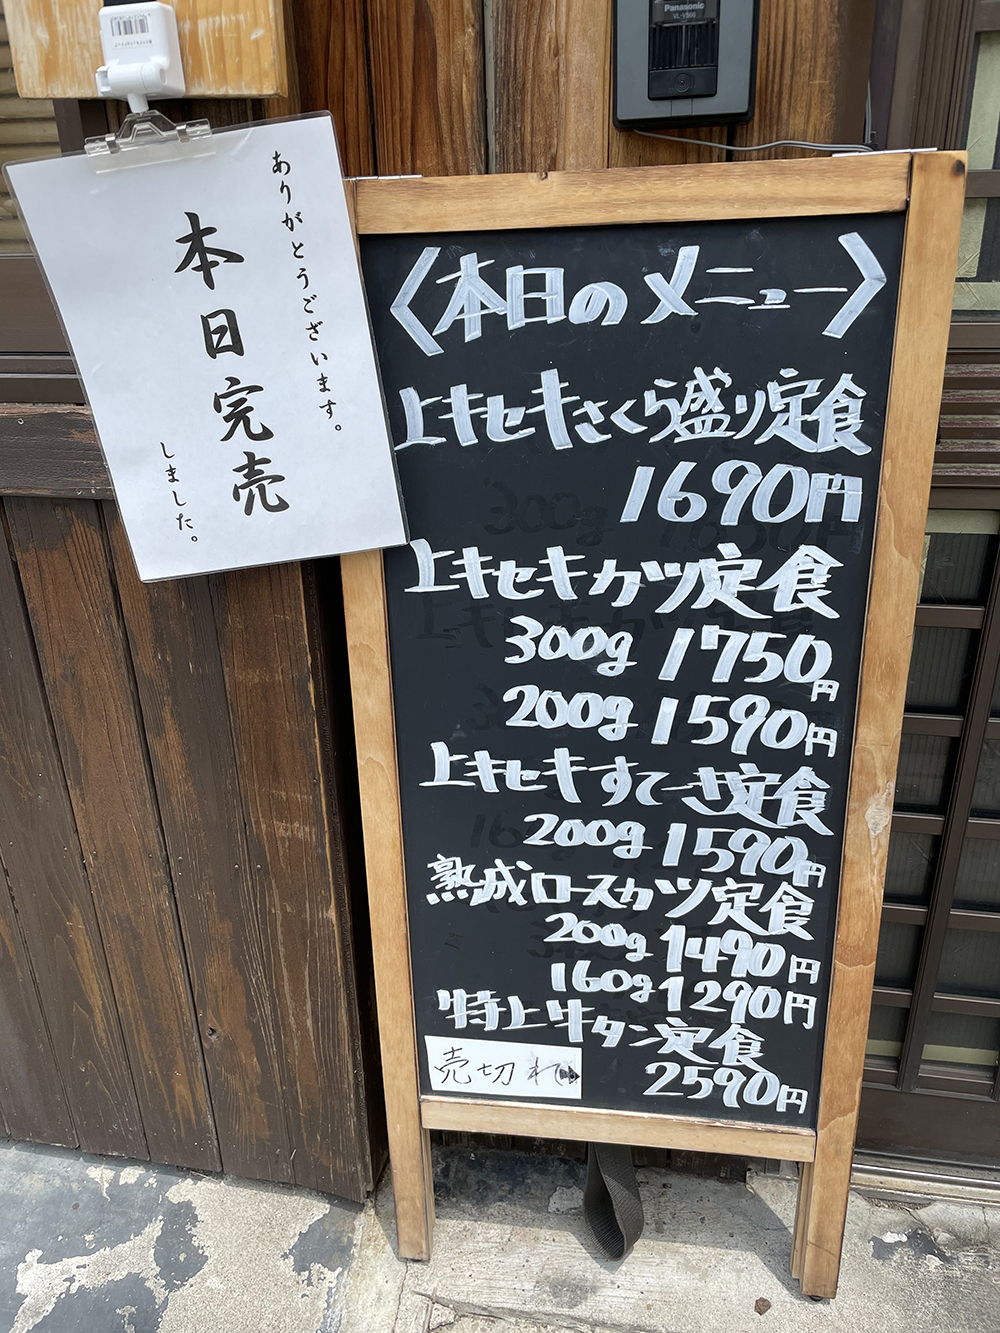 Panasonic
VL-V566
ありがとうございます。
本日完売
しました。
〈本日のメニュー〉
上キセキさくら盛り定食
1690円
上キセキカツ定食
300g 1750円
200g 1590円
上キセキすてーき定食
200g 1590円
熟成ロースカツ定食
200g 1490円
160g 1290円
特上牛タン定食
売切れ
2590円